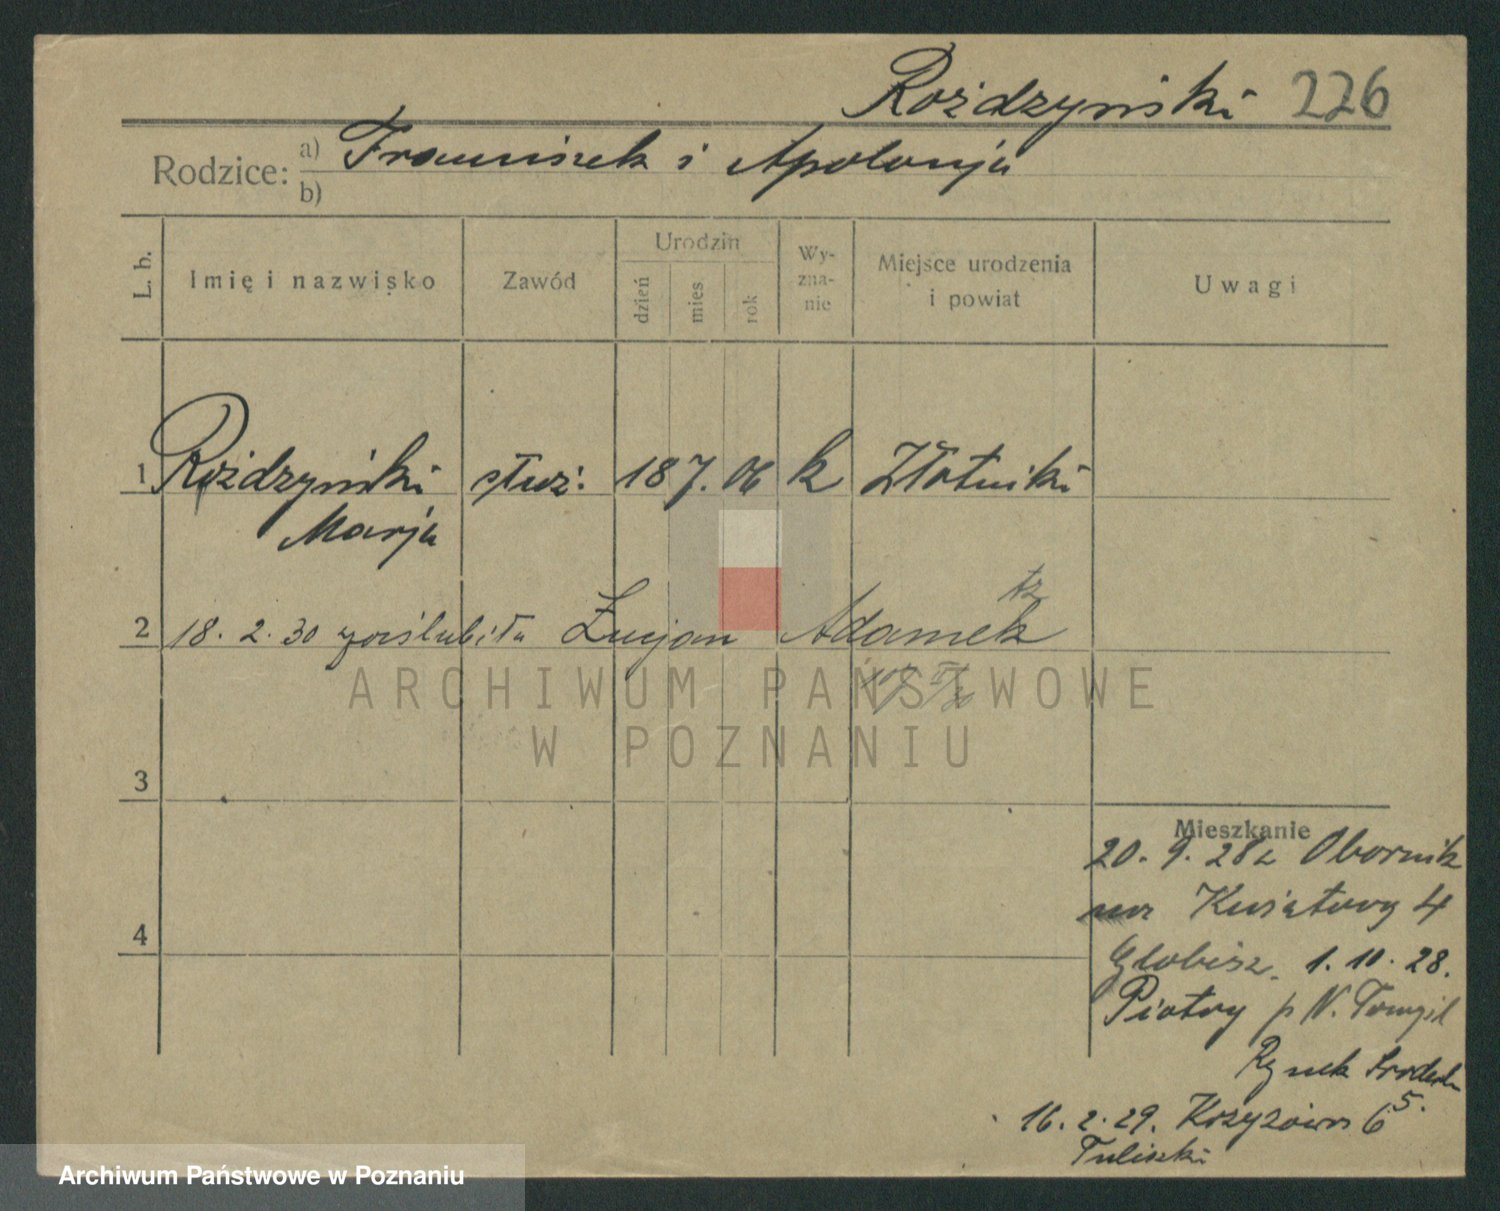 Rożdzyński 226
Rodzice: a) Franciszek i Apolonja
b)
L. b.
Imię i nazwisko
Zawód
Urodzin
dzień
mies
rok
Wy-
zna-
nie
Miejsce urodzenia
i powiat
Uwagi
1 Rożdzyński służ. 18 7. 06 k Złotniki
Marja
2 18. 2. 30 poślubiła Lucjan Adamek
ARCHIWUM PAŃSTWOWE
W POZNANIU
3
4
Mieszkanie
20. 9. 28 z Obornik
Kwiatowy 4
Globisz. 1. 10. 28.
Piotry p N. Tomyśl
Rynek
5.
16. 2. 29. Krzyżowa 6
Tuliszki
Archiwum Państwowe w Poznaniu